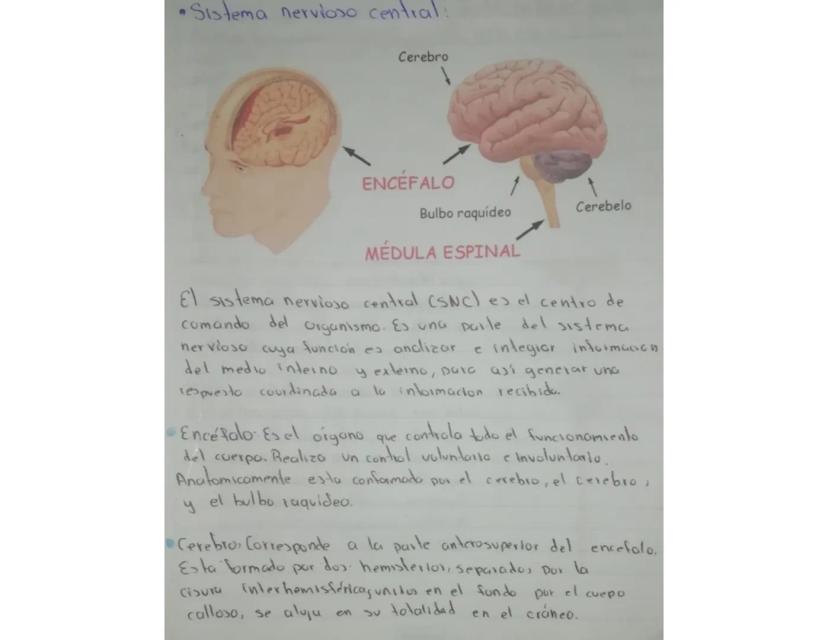 • Sistema nervioso central:
Cerebro
ENCÉFALO
Bulbo raquídeo
Cerebelo
MÉDULA ESPINAL
El sistema nervioso central (SNC) es el centro de
comando del organismo. Es una parte del sistema
nervioso cuya función es analizar e integrar informacion
del medio interno y externo, para así generar una
respuesta coordinada a la informacion recibida.
• Encéfalo: Es el órgano que controla todo el funcionamiento
del cuerpo. Realiza un control voluntario e involuntario.
Anatomicamente esta conformado por el cerebro, el cerebro,
y el bulbo raquideo.
• Cerebro: Corresponde a la parte anterosuperior del encefalo.
Esta formado por dos hemisferios, separados por la
cisura interhemisférica, unidos en el fondo por el cuepo
calloso, se aluja en su totalidad en el cráneo.